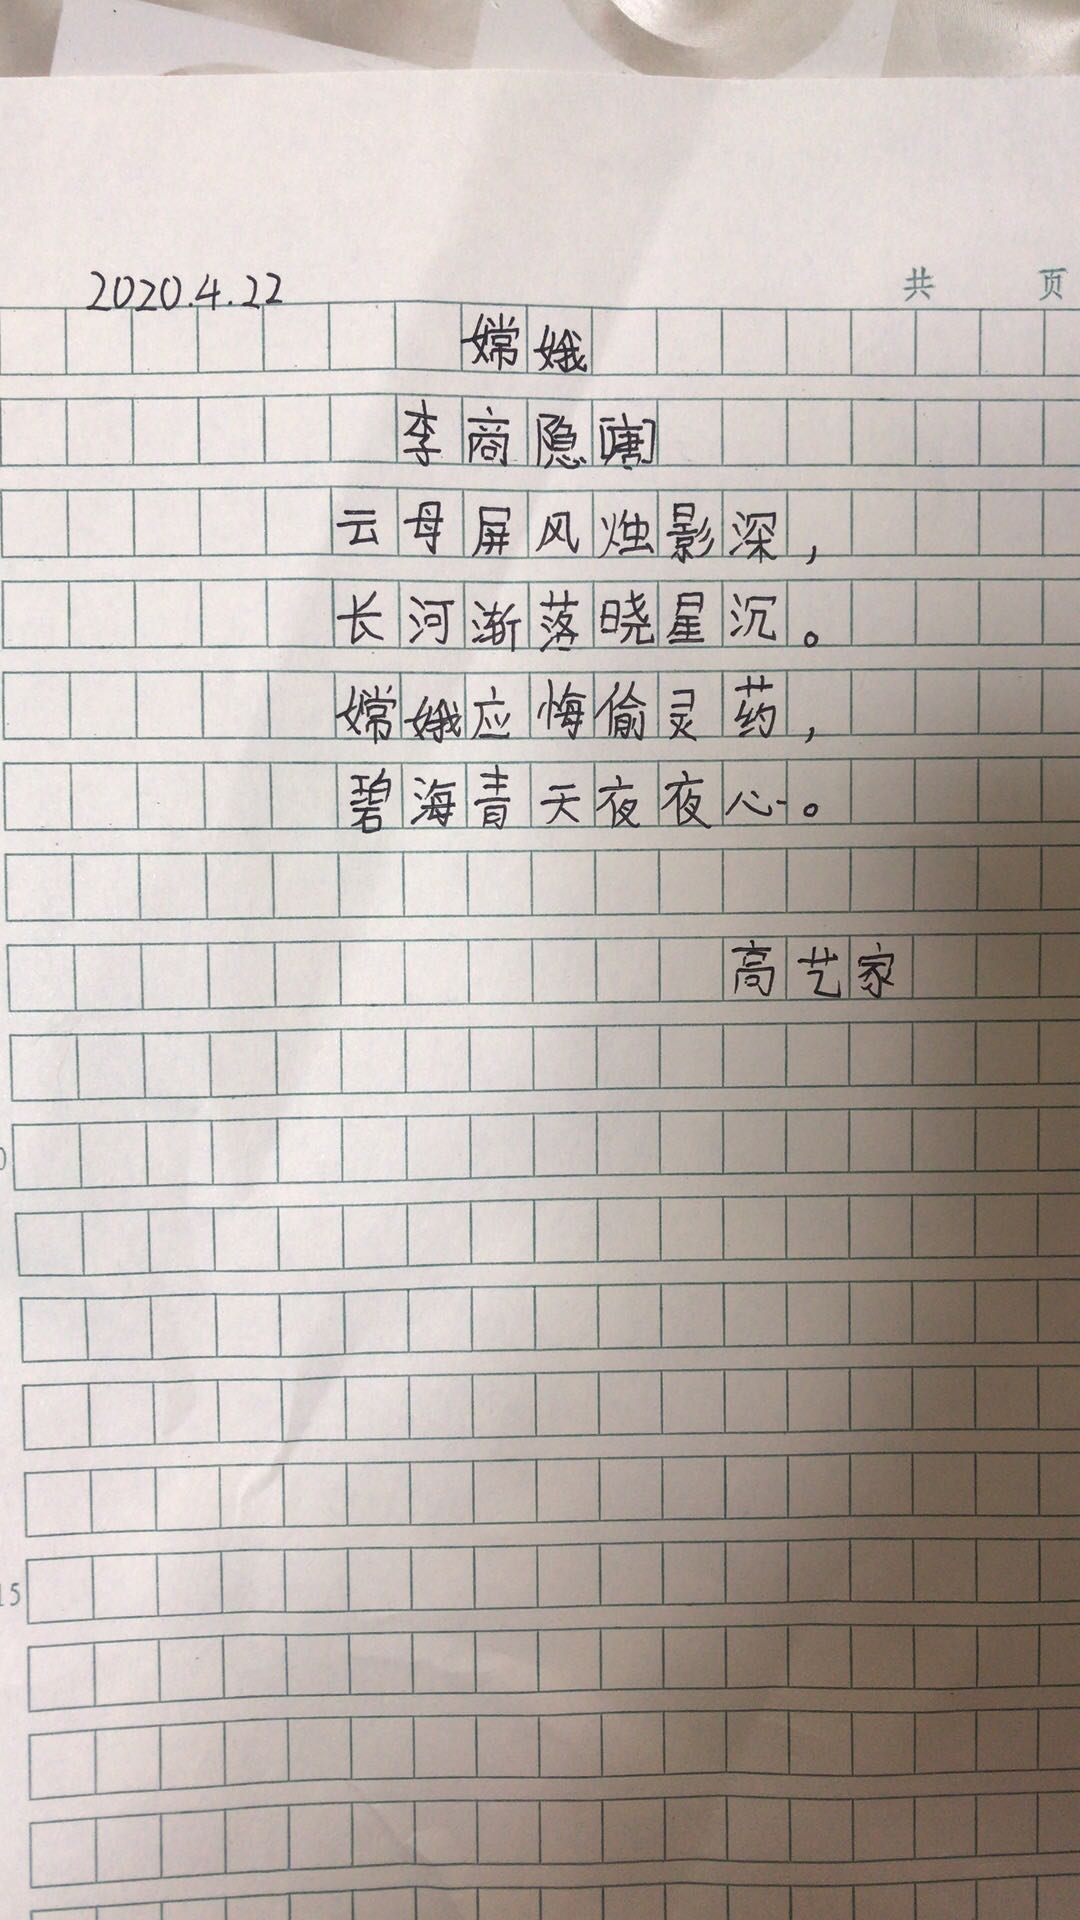 2020.4.22
共 页
嫦娥
李商隐[唐]
云母屏风烛影深,
长河渐落晓星沉。
嫦娥应悔偷灵药,
碧海青天夜夜心。
高艺家
15